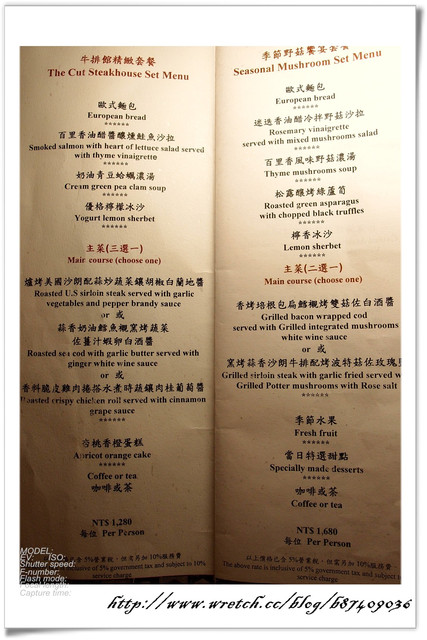 牛排館精緻套餐
The Cut Steakhouse Set Menu
歐式麵包
European bread
******
百里香油醋醬釀燻鮭魚沙拉
Smoked salmon with heart of lettuce salad served
with thyme vinaigrette
******
奶油青豆蛤蠣濃湯
Cream green pea clam soup
******
優格檸檬冰沙
Yogurt lemon sherbet
******
主菜(三選一)
Main course (choose one)
爐烤美國沙朗配蒜炒蔬菜鑲胡椒白蘭地醬
Roasted U.S sirloin steak served with garlic
vegetables and pepper brandy sauce
or 或
蒜香奶油鱈魚襯窯烤蔬菜
佐薑汁蝦卵白酒醬
Roasted sea cod with garlic butter served with
ginger white wine sauce
or 或
香料脆皮雞肉捲搭水煮時蔬鑲肉桂葡萄醬
Roasted crispy chicken roll served with cinnamon
grape sauce
******
杏桃香橙蛋糕
Apricot orange cake
******
Coffee or tea
咖啡或茶
NT$ 1,280
每位 Per Person
含5%營業稅，但需另加10%服務費
of 5% government tax and subject to 10%
service charge
季節野菇饗宴套餐
Seasonal Mushroom Set Menu
歐式麵包
European bread
******
迷迭香油醋冷拌野菇沙拉
Rosemary vinaigrette
served with mixed mushrooms salad
******
百里香風味野菇濃湯
Thyme mushrooms soup
******
松露釀烤綠蘆筍
Roasted green asparagus
with chopped black truffles
******
檸香冰沙
Lemon sherbet
******
主菜(二選一)
Main course (choose one)
香烤培根包扁鱈襯烤雙菇佐白酒醬
Grilled bacon wrapped cod
served with Grilled integrated mushrooms
white wine sauce
or 或
窯烤蒜香沙朗牛排配烤波特菇佐玫瑰鹽
Grilled sirloin steak with garlic fried served w
Grilled Potter mushrooms with Rose salt
******
季節水果
Fresh fruit
******
當日特選甜點
Specially made desserts
******
咖啡或茶
Coffee or tea
NT$ 1,680
每位 Per Person
以上價格已含5%營業稅，但需另加10%服務費
The above rate is inclusive of 5% government tax and subject to
service charge
MODEL:
EV: ISO:
Shutter speed:
F-number:
Flash mode:
Focal length:
Capture time:
http://www.wretch.cc/blog/b87409036